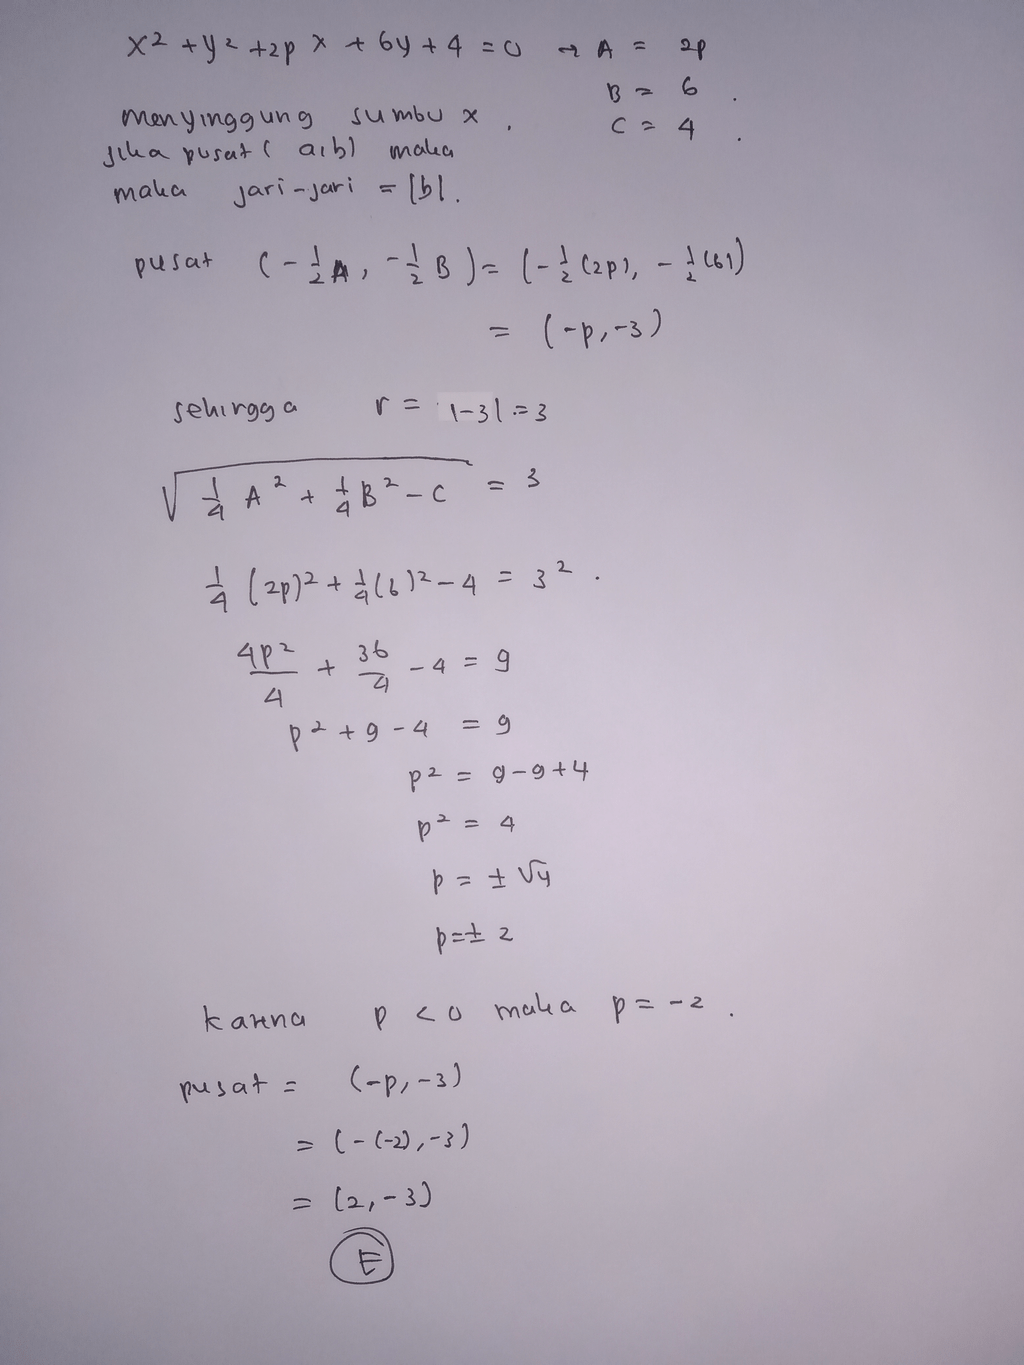 x² + y² + 2p x + 6y + 4 = 0 → A = 2p
B = 6 .
menyinggung sumbu x , C = 4 .
jika pusat ( a,b) maka
maka jari-jari = |b|.
pusat (-1/2 A, -1/2 B) = (-1/2 (2p), -1/2 (6))
= (-p,-3)
sehingga r = |-3| = 3
√(1/4 A² + 1/4 B² - C) = 3
1/4 (2p)² + 1/4 (6)² - 4 = 3² .
4p²/4 + 36/4 - 4 = 9
p² + 9 - 4 = 9
p² = 9-9+4
p² = 4
p = ± √4
p = ± 2
karena p < 0 maka p = -2 .
pusat = (-p,-3)
= (-(-2),-3)
= (2,-3)
E